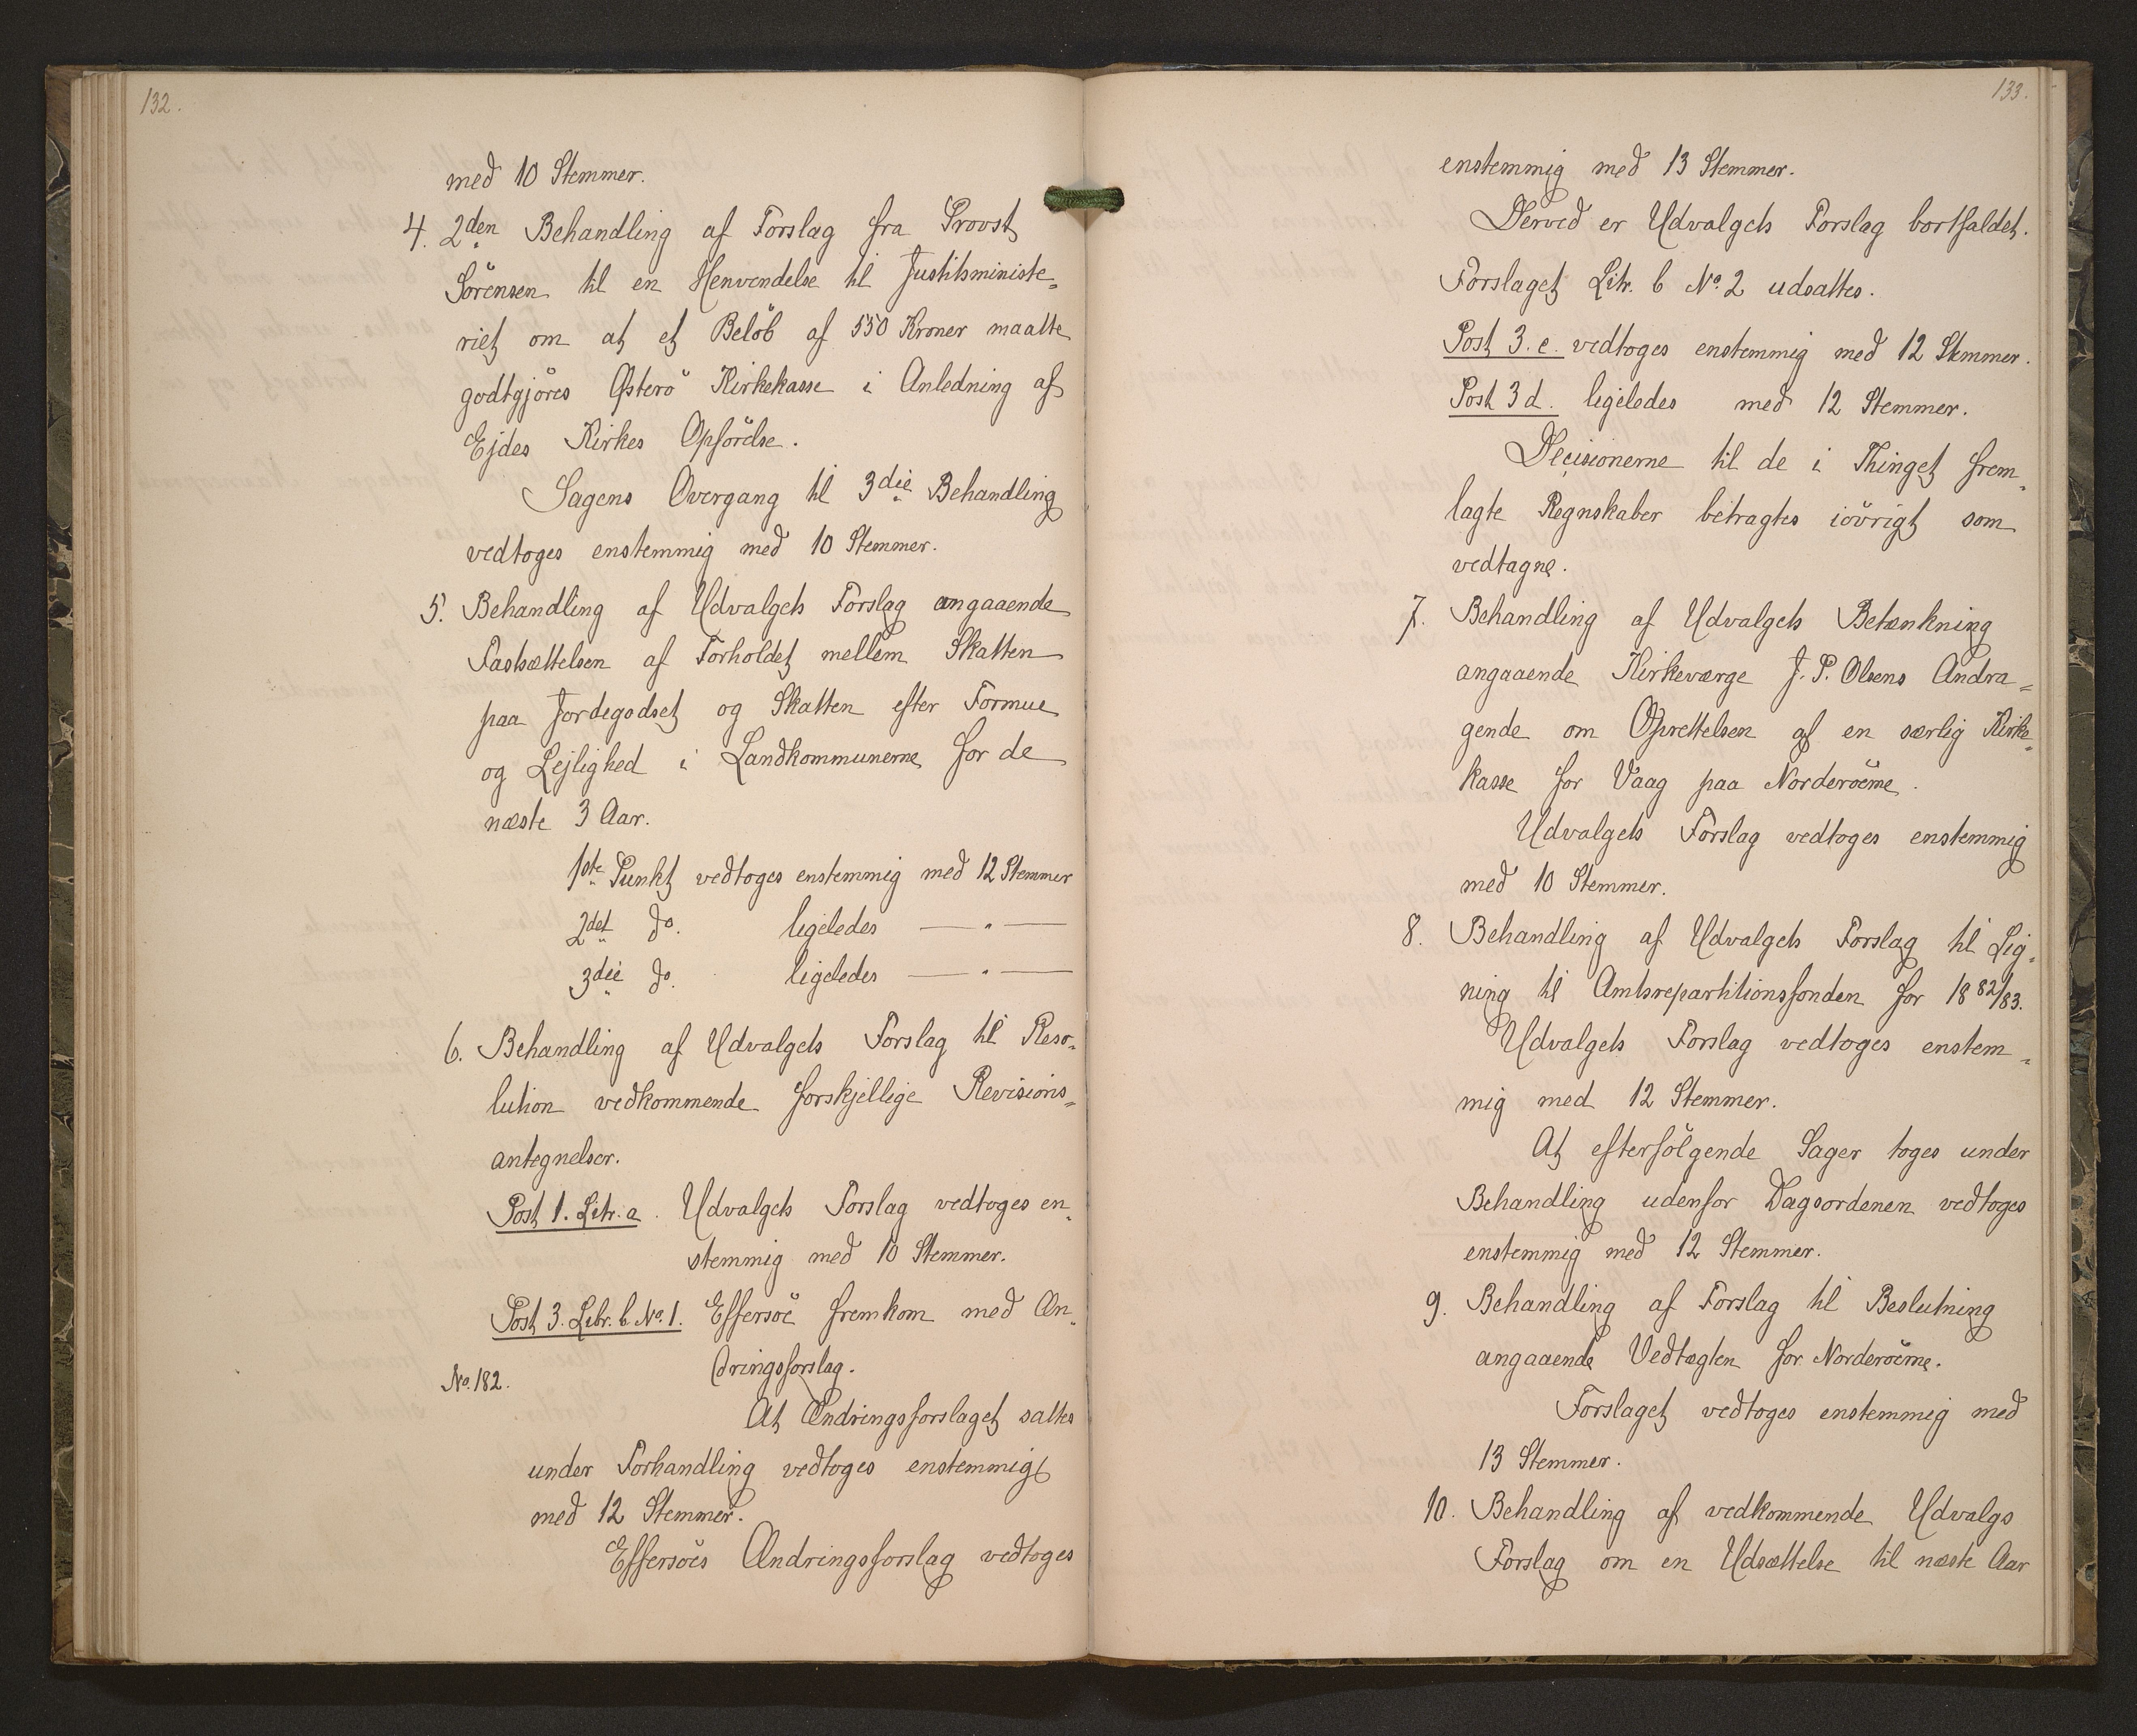 132.
med 10 Stemmer.
4. 2den Behandling af Forslag fra Provst
Sörensen til en Henvendelse til Justitsministe=
riet om at et Belöb af 550 Kroner maatte
godtgjöres Österö Kirkekasse i Anledning af
Ejdes Kirkes Opförelse.
Sagens Overgang til 3die Behandling
vedtoges enstemmig med 10 Stemmer.
5. Behandling af Udvalgets Forslag angaaende
Fastsættelsen af Forholdet mellem Skatten
paa Jordegodset og Skatten efter Formue
og Lejlighed i Landkommunerne for de
næste 3 Aar.
1ste Punkt vedtoges enstemmig med 12 Stemmer
2det do. ligeledes — " —
3die do. ligeledes — " —
6. Behandling af Udvalgets Forslag til Reso=
lution vedkommende forskjellige Revisions=
antegnelser.
Post 1. Litr. a. Udvalgets Forslag vedtoges en=
stemmig med 10 Stemmer.
Post 3. Litr. b. No. 1. Effersöe fremkom med Æn=
dringsforslag.
No. 182.
At Ændringsforslaget sattes
under Forhandling vedtoges enstemmig
med 12 Stemmer.
Effersöes Ændringsforslag vedtoges
133.
enstemmig med 13 Stemmer.
Derved er Udvalgets Forslag bortfaldet.
Forslaget Litr. b No. 2 udsattes.
Post 3. c. vedtoges enstemmig med 12 Stemmer.
Post 3 d. ligeledes med 12 Stemmer.
Decisionerne til de i Thinget frem=
lagte Regnskaber betragtes iövrigt som
vedtagne.
7. Behandling af Udvalgets Betænkning
angaaende Kirkeværge J. P. Olsens Andra=
gende om Oprettelsen af en særlig Kirke=
kasse for Vaag paa Norderöerne.
Udvalgets Forslag vedtoges enstemmig
med 10 Stemmer.
8. Behandling af Udvalgets Forslag til Lig=
ning til Amtsrepartitionsfonden for 1882/83.
Udvalgets Forslag vedtoges enstem=
mig med 12 Stemmer.
At efterfölgende Sager toges under
Behandling udenfor Dagsordenen vedtoges
enstemmig med 12 Stemmer.
9. Behandling af Forslag til Beslutning
angaaende Vedtægten for Norderöerne.
Forslaget vedtoges enstemmig med
13 Stemmer.
10. Behandling af vedkommende Udvalgs
Forslag om en Udsættelse til næste Aar